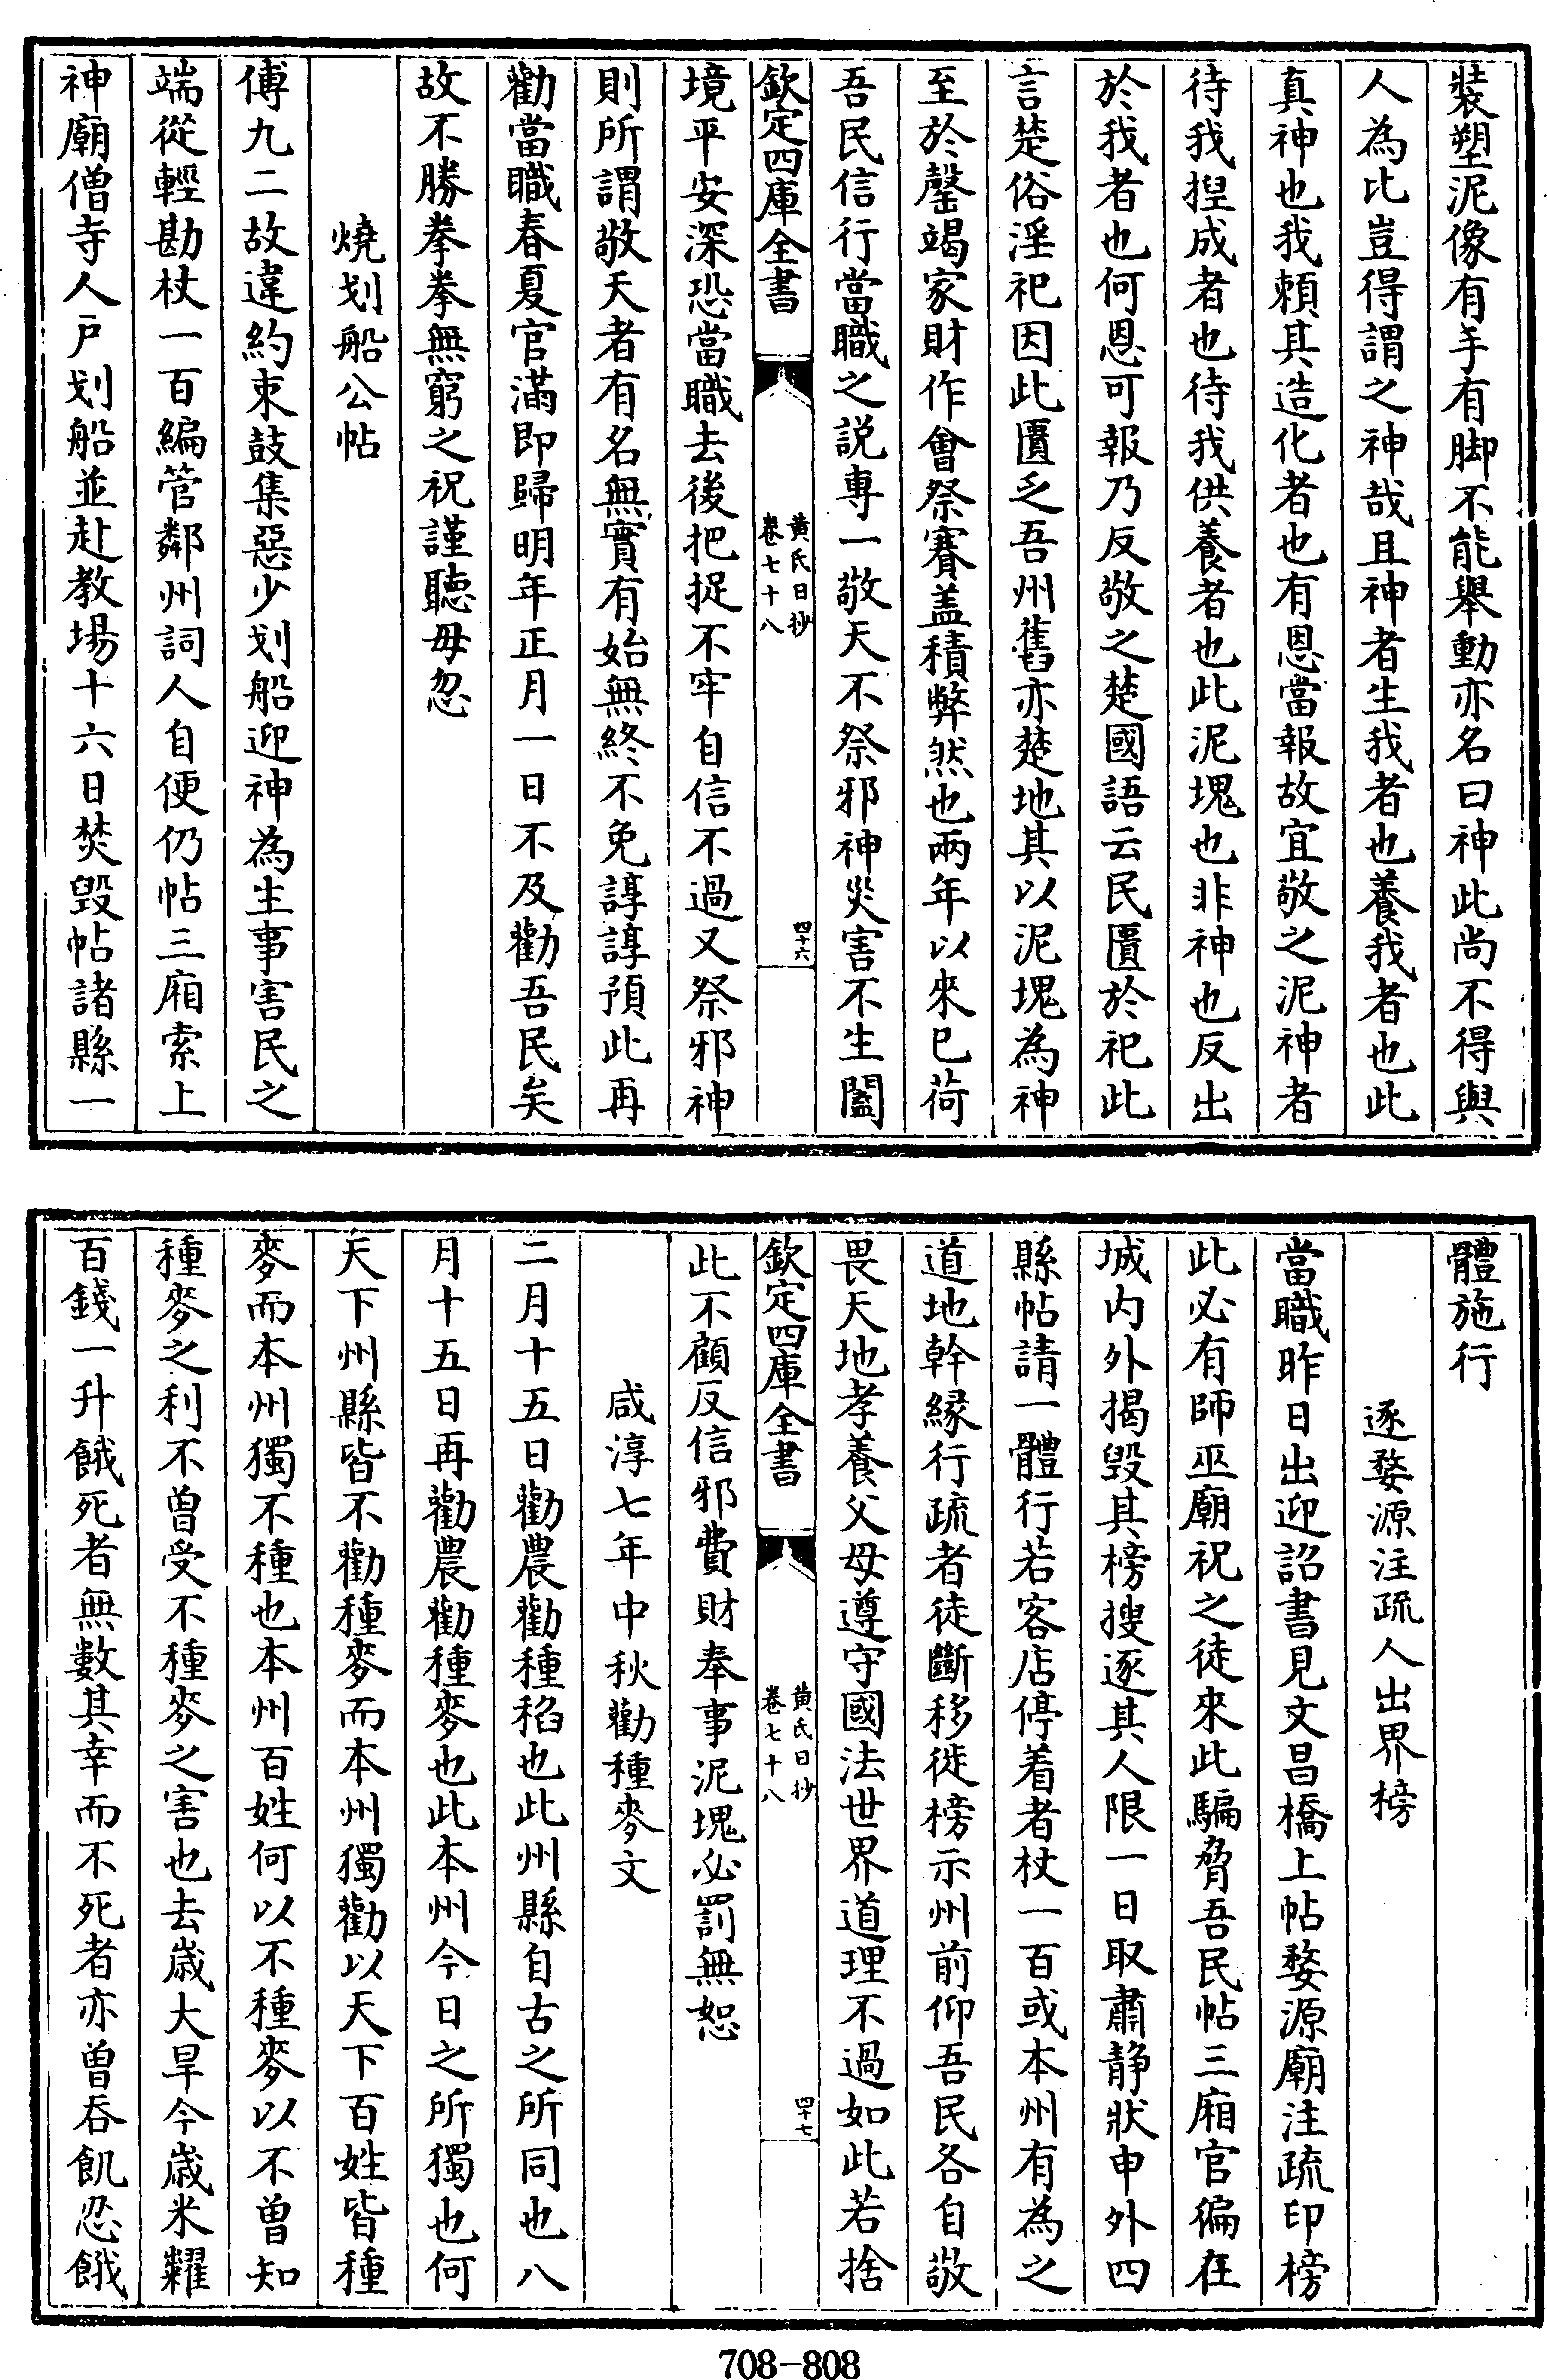 裝塑泥像有手有脚不能舉動亦名曰神此尚不得與
人為比豈得謂之神哉且神者生我者也養我者也此
真神也我頼其造化者也有恩當報故宜敬之泥神者
待我揑成者也待我供養者也此泥塊也非神也反出
於我者也何恩可報乃反敬之楚國語云民匱於祀此
言楚俗淫祀因此匱乏吾州舊亦楚地其以泥塊為神
至於罄竭家財作會祭賽盖積弊然也兩年以來已荷
吾民信行當職之説專一敬天不祭邪神災害不生闔
欽定四庫全書
黄氏日抄
卷七十八
四十六
境平安深恐當職去後把捉不牢自信不過又祭邪神
則所謂敬天者有名無實有始無終不免諄諄預此再
勸當職春夏官滿即歸明年正月一日不及勸吾民矣
故不勝拳拳無窮之祝謹聽毋忽
燒划船公帖
傅九二故違約束鼓集惡少划船迎神為生事害民之
端從輕勘杖一百編管鄰州詞人自便仍帖三廂索上
神廟僧寺人戶划船並赴教場十六日焚毀帖諸縣一
體施行
逐婺源注疏人出界榜
當職昨日出迎詔書見文昌橋上帖婺源廟注疏印榜
此必有師巫廟祝之徒來此騙脅吾民帖三廂官徧在
城内外揭毀其榜搜逐其人限一日取肅静狀申外四
縣帖請一體行若客店停着者杖一百或本州有為之
道地幹縁行疏者徒斷移徙榜示州前仰吾民各自敬
畏天地孝養父母遵守國法世界道理不過如此若捨
欽定四庫全書
黄氏日抄
卷七十八
四十七
此不顧反信邪費財奉事泥塊必罰無恕
咸淳七年中秋勸種麥文
二月十五日勸農勸種稻也此州縣自古之所同也八
月十五日再勸農勸種麥也此本州今日之所獨也何
天下州縣皆不勸種麥而本州獨勸以天下百姓皆種
麥而本州獨不種也本州百姓何以不種麥以不曾知
種麥之利不曾受不種麥之害也去歲大旱今歲米糶
百錢一升餓死者無數其幸而不死者亦曾吞飢忍餓
708-808